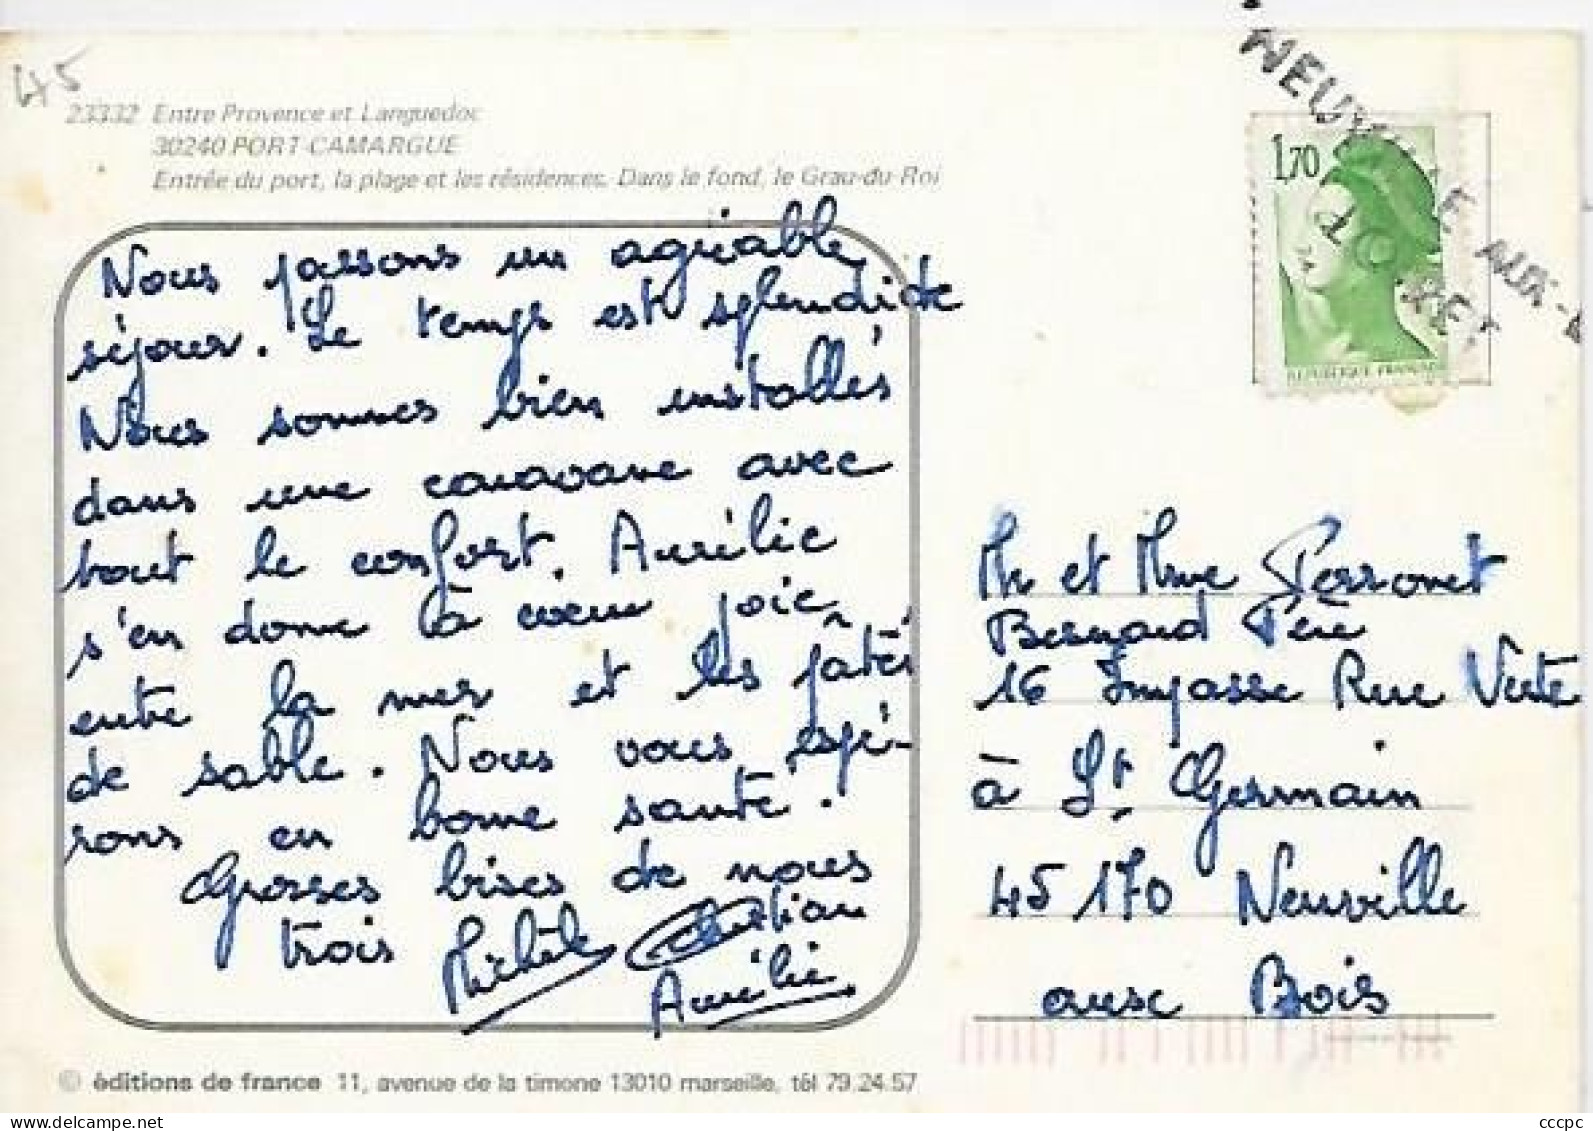 45
23332 Entre Provence et Languedoc
30240 PORT CAMARGUE
Entrée du port, la plage et les résidences. Dans le fond, le Grau-du-Roi
Nous passons un agréable
séjour. Le temps est splendide
Nous sommes bien installés
dans une caravane avec
tout le confort. Aurélie
s'en donne à cœur joie
entre la mer et les pâtés
de sable. Nous vous espé-
rons en bonne santé.
Grosses bises de nous
trois Michèle Christian
Aurélie
NEUVILLE AUX-
1,70
REPUBLIQUE FRANCAISE
Mr et Mme Perronet
Bernard Père
16 Impasse Rue Verte
à St Germain
45170 Neuville
aux Bois
© éditions de france 11, avenue de la timone 13010 marseille, tél 79.24.57
cccpc